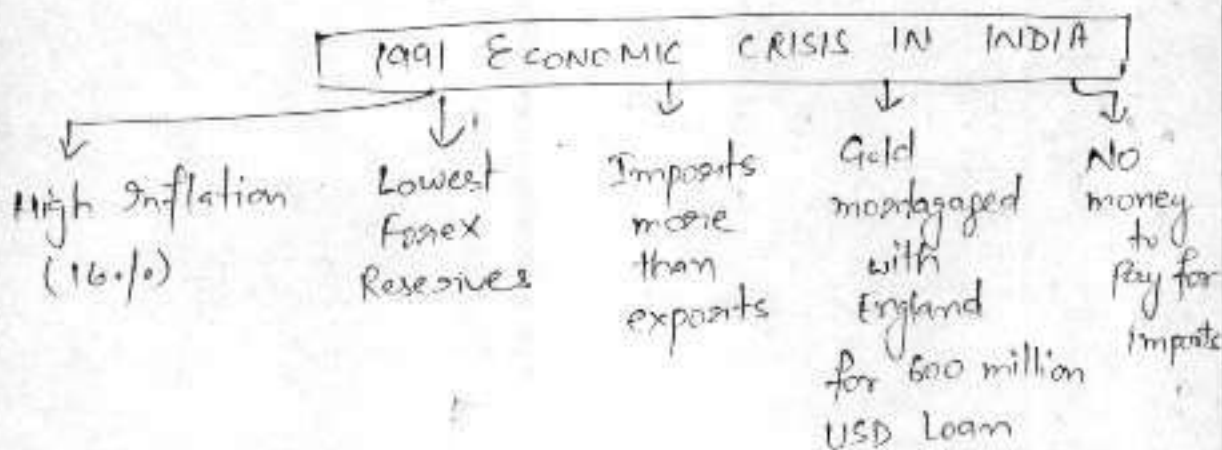 1991 ECONOMIC CRISIS IN INDIA
High Inflation
(16%)
Lowest
Forex
Reserves
Imports
more
than
exports
Gold
mordagaged
with
England
for 600 million
USD Loan
No
money
to
Pay for
imports